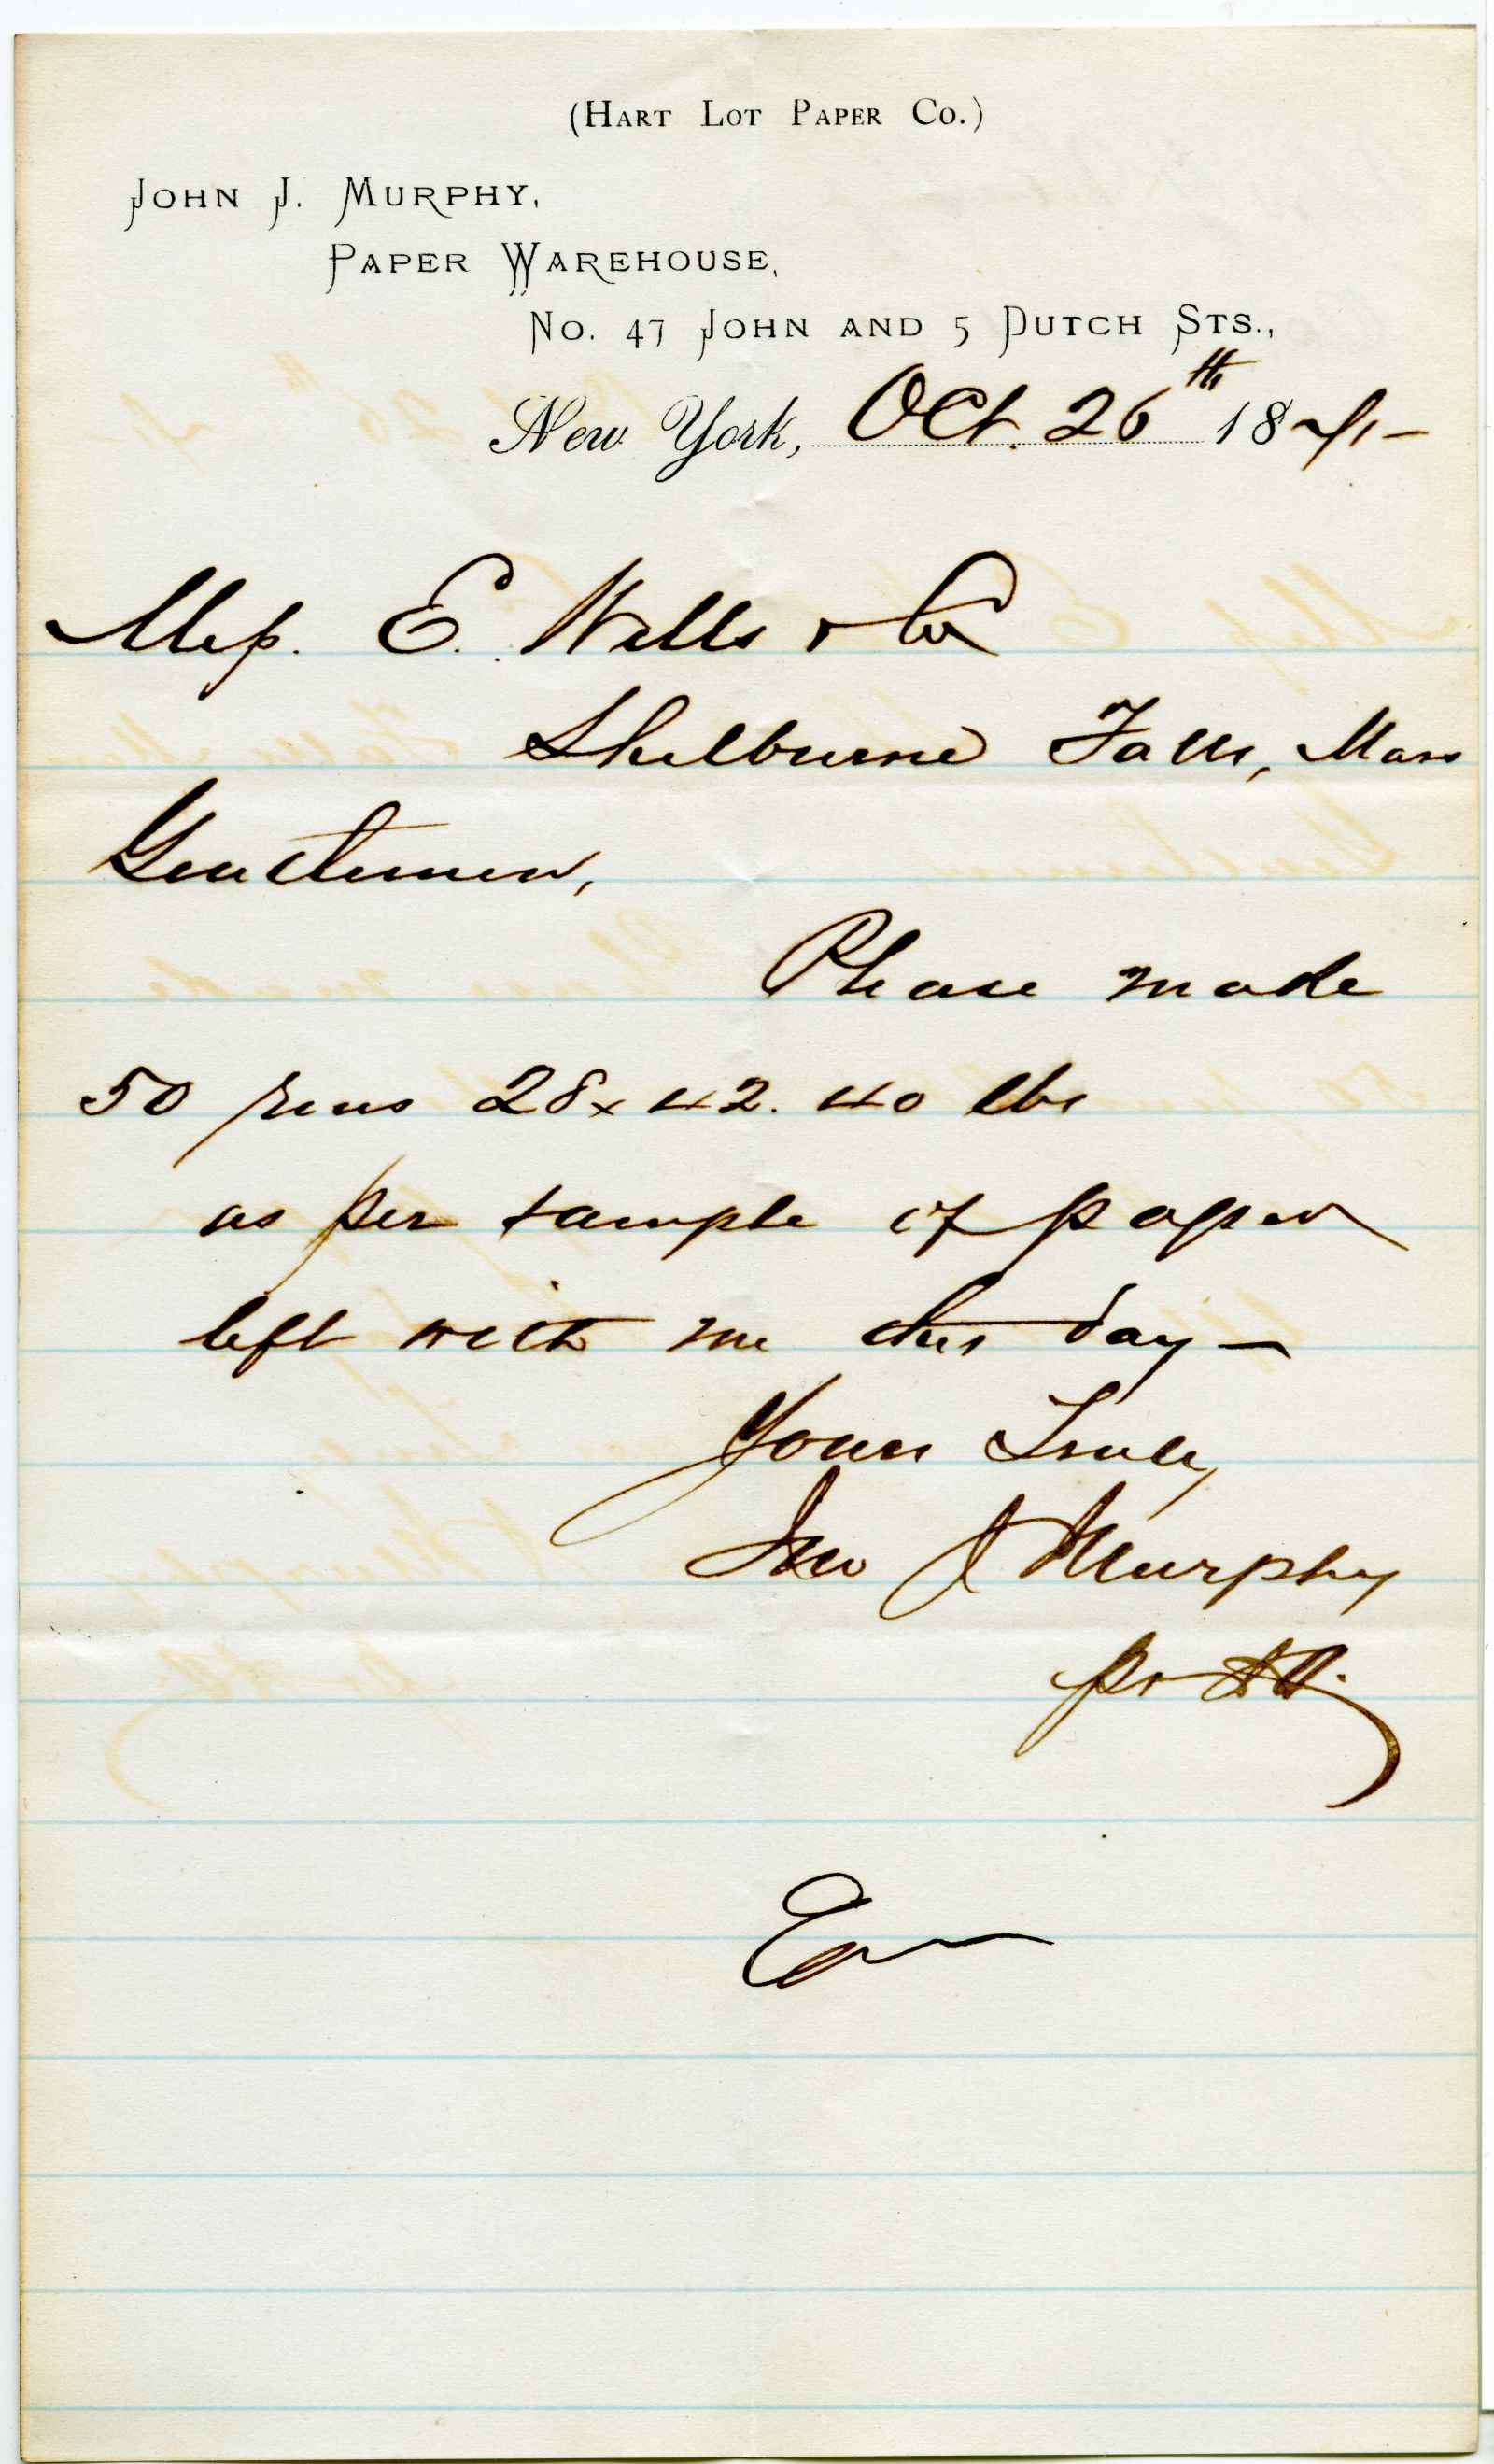 (Hart Lot Paper Co.)
John J. Murphy,
Paper Warehouse,
No. 47 John and 5 Dutch Sts.,
New York, Oct. 26th 187
Mess. E. Wells & Co
Shelburne Falls, Mass
Gentlemen,
Please make
50 rms 28x42. 40 lbs
as per sample of paper
left with me this day —
Yours Truly
Jno J Murphy
pr